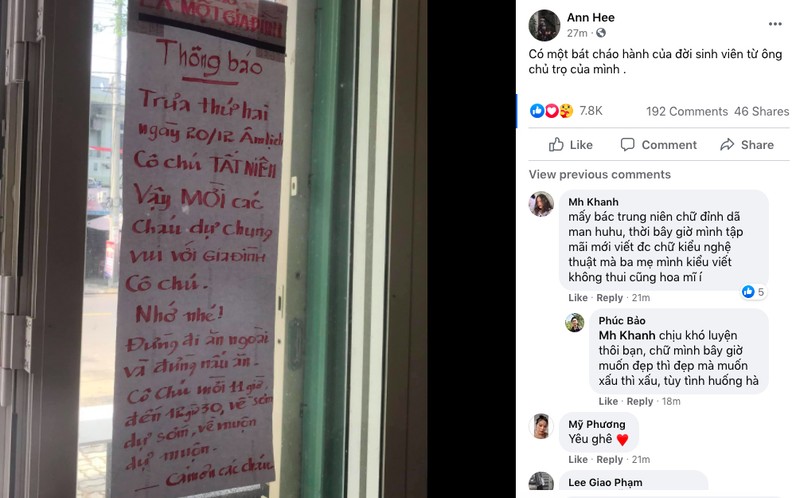 LÀ MỘT GIA ĐÌNH
Thông báo
Trưa thứ hai
ngày 20/12 Âm lịch
Cô chú TẤT NIÊN
Vậy MỜI các
Cháu dự chung
VUI VỚI GIA ĐÌNH
Cô chú.
Nhớ nhé!
Đừng đi ăn ngoài
và đừng nấu ăn.
Cô Chú mời 11 giờ
đến 12 giờ 30, về sớm
dự sớm, về muộn
dự muộn.
— Cảm ơn các cháu
Ann Hee
27m ·
Có một bát cháo hành của đời sinh viên từ ông
chủ trọ của mình .
7.8K 192 Comments 46 Shares
Like Comment Share
View previous comments
Mh Khanh
mấy bác trung niên chữ đỉnh dã
man huhu, thời bây giờ mình tập
mãi mới viết đc chữ kiểu nghệ
thuật mà ba mẹ mình kiểu viết
không thui cũng hoa mĩ í
5
Like · Reply · 21m
Phúc Bảo
Mh Khanh chịu khó luyện
thôi bạn, chữ mình bây giờ
muốn đẹp thì đẹp mà muốn
xấu thì xấu, tùy tình huống hà
Like · Reply · 18m
Mỹ Phương
Yêu ghê
Like · Reply · 21m
Lee Giao Phạm